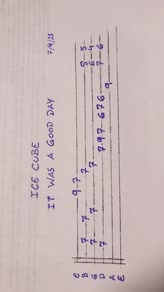 ICE CUBE
IT WAS A GOOD DAY 7/9/25
E 9-7
B 7--7 7 5-5
G 7--7 7 6-4
D 7--7 797-676 7-6
A 9
E